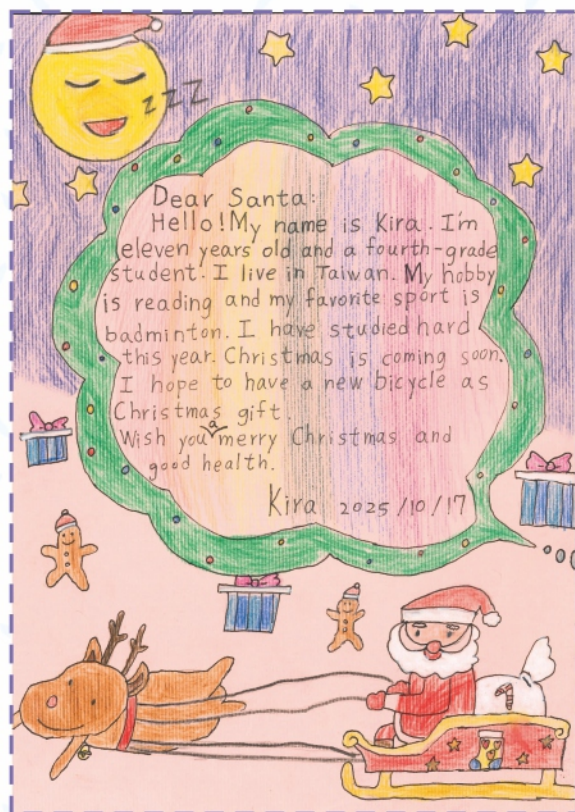 zZZ
Dear Santa:
Hello! My name is Kira. I'm
eleven years old and a fourth-grade
student. I live in Taiwan. My hobby
is reading and my favorite sport is
badminton. I have studied hard
this year. Christmas is coming soon.
I hope to have a new bicycle as
Christmas gift.
Wish you a merry Christmas and
good health.
Kira 2025/10/17